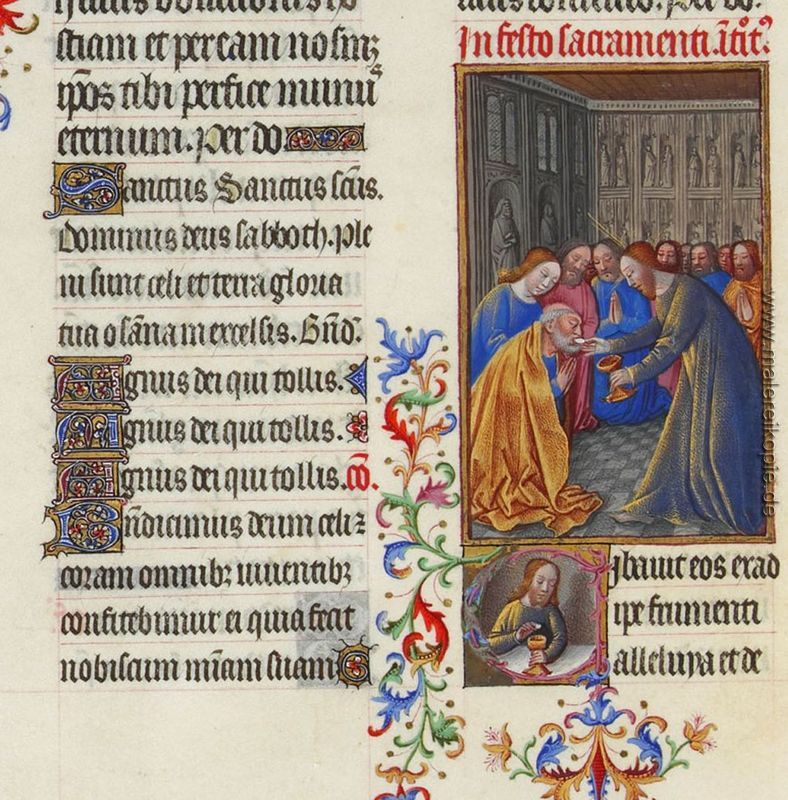 stiam et per eam nosmz
ipos tibi perfice munuˢ
eternum. Per do
Sanctus Sanctus scus.
Dominus deus sabboth. Ple
ni sunt celi et terra gloria
tua osanna in excelsis. Bnd.
Agnus dei qui tollis.
Agnus dei qui tollis.
Agnus dei qui tollis. co.
Bndicimus deum celi z
coram omnibz viventibz
confitebimur ei quia fecit
nobiscum miam suam
In festo sacramenti itoit.
Cibavit eos ex ad
ipe frumenti
alleluya et de
www.malereikopie.de